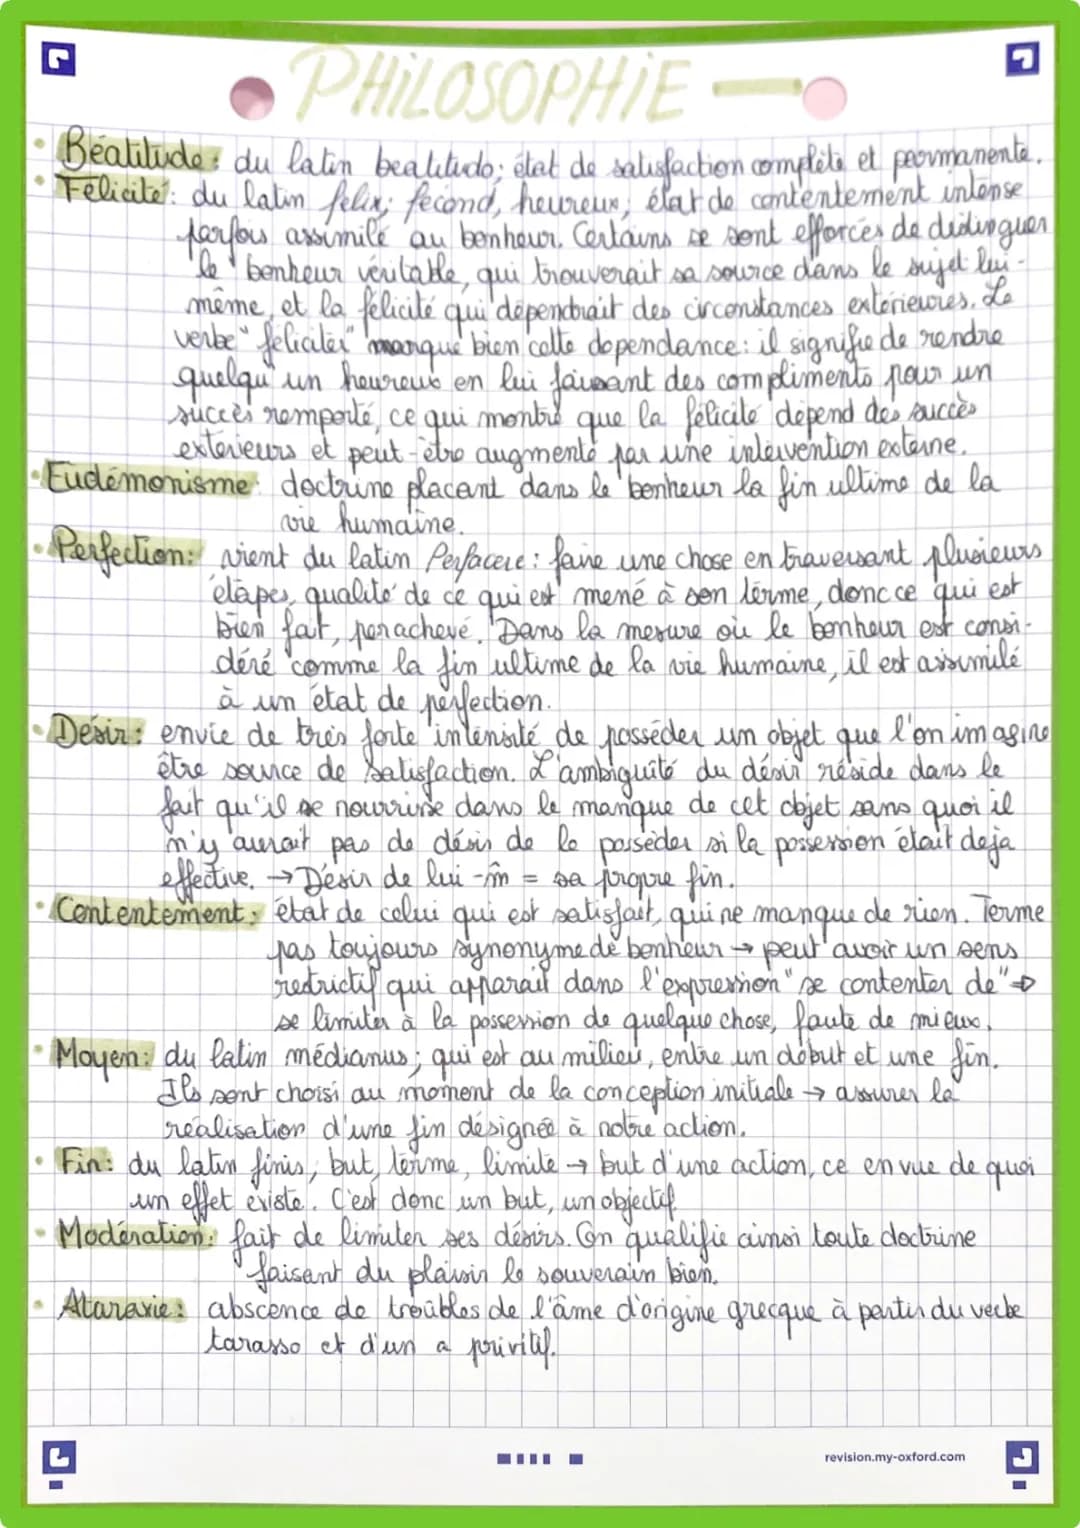 PHILOSOPHIE
• Béatitude : du latin beatitudo ; état de satisfaction complète et permanente.
• Félicité : du latin felix ; fécond, heureux ; état de contentement intense
parfois assimilé au bonheur. Certains se sont efforcés de distinguer
le bonheur véritable, qui trouverait sa source dans le sujet lui-
même, et la félicité qui dépendrait des circonstances extérieures. Le
verbe "féliciter" marque bien cette dépendance : il signifie de rendre
quelqu'un heureux en lui faisant des compliments pour un
succès remporté, ce qui montre que la félicité dépend des succès
extérieurs et peut-être augmenté par une intervention externe.
• Eudémonisme : doctrine plaçant dans le bonheur la fin ultime de la
vie humaine.
• Perfection : vient du latin Perfacere : faire une chose en traversant plusieurs
étapes, qualité de ce qui est mené à son terme, donc ce qui est
bien fait, parachevé. Dans la mesure où le bonheur est consi-
déré comme la fin ultime de la vie humaine, il est assimilé
à un état de perfection.
• Désir : envie de très forte intensité de posséder un objet que l'on imagine
être source de satisfaction. L'ambiguïté du désir réside dans le
fait qu'il se nourrisse dans le manque de cet objet sans quoi il
n'y aurait pas de désir de le posséder si la possession était deja
effective. → Désir de lui-m̂ = sa propre fin.
• Contentement : état de celui qui est satisfait, qui ne manque de rien. Terme
pas toujours synonyme de bonheur → peut avoir un sens
restrictif qui apparait dans l'expression "se contenter de" ⇒
se limiter à la possession de quelque chose, faute de mieux.
• Moyen : du latin médianus ; qui est au milieu, entre un début et une fin.
Ils sont choisi au moment de la conception initiale → assurer la
réalisation d'une fin désignée à notre action.
• Fin : du latin finis, but, terme, limite → but d'une action, ce en vue de quoi
un effet existe. C'est donc un but, un objectif.
• Modération : fait de limiter ses désirs. On qualifie ainsi toute doctrine
faisant du plaisir le souverain bien.
• Ataraxie : abscence de troubles de l'âme d'origine grecque à partir du verbe
tarasso et d'un a privitif.
revision.my-oxford.com